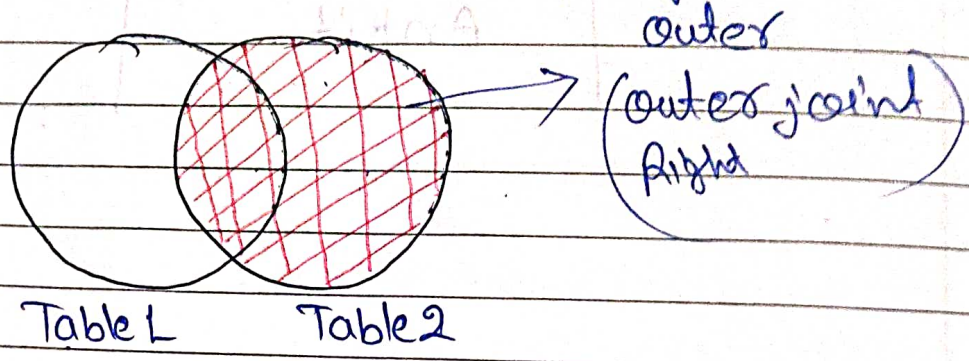 outer
(outer joint
Right)
Table 1 Table 2